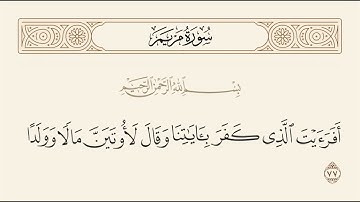 سُورَةُ مَرْيَم
بِسْمِ اللَّهِ الرَّحْمَٰنِ الرَّحِيمِ
أَفَرَءَيْتَ ٱلَّذِى كَفَرَ بِـَٔايَٰتِنَا وَقَالَ لَأُوتَيَنَّ مَالًا وَوَلَدًا
٧٧